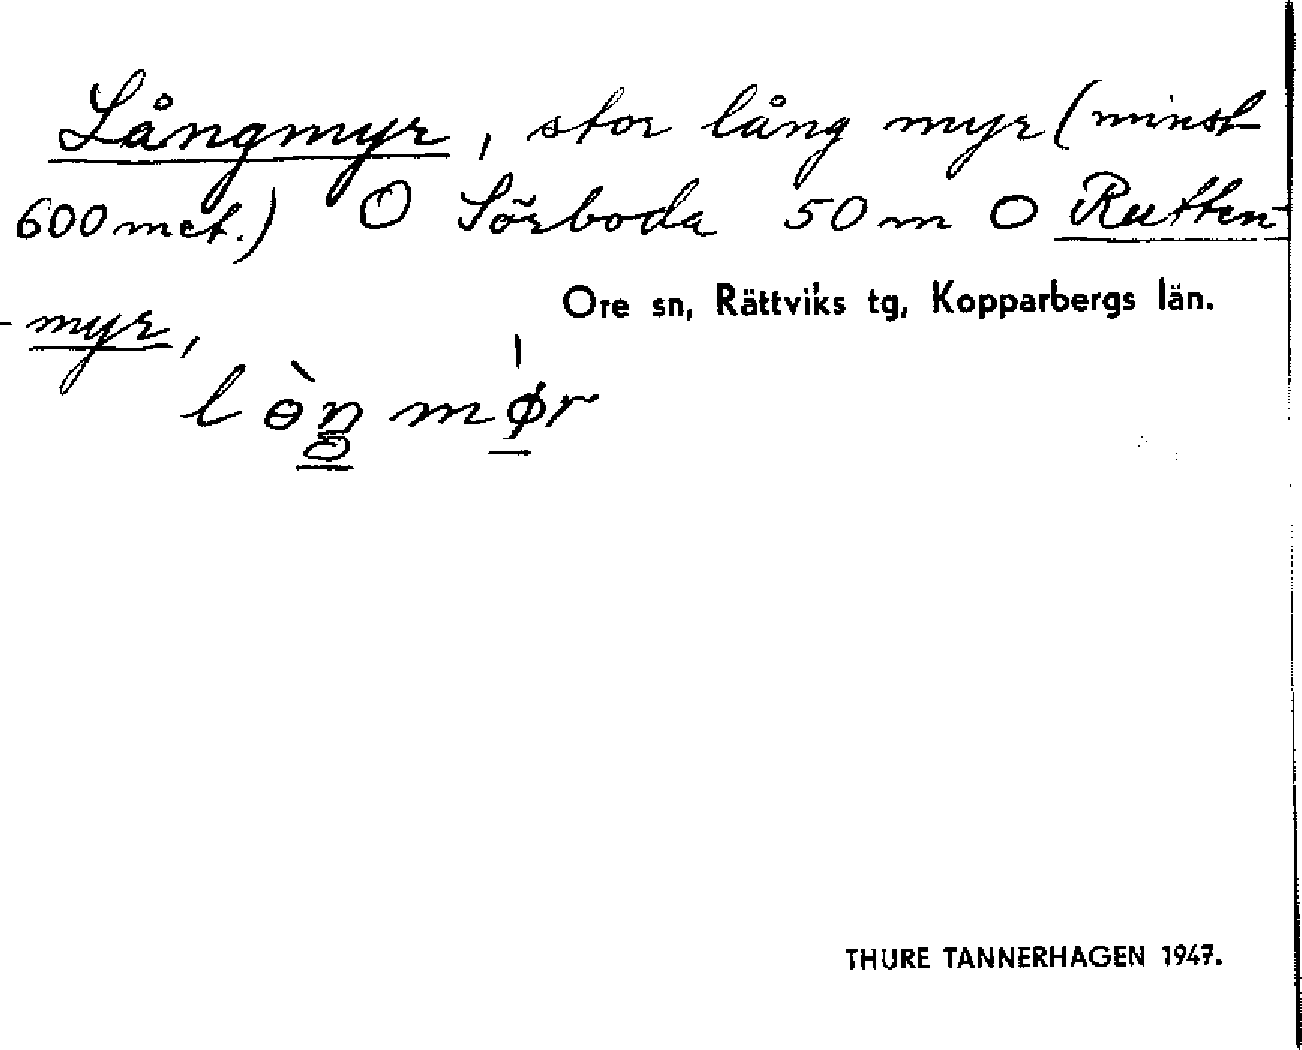 Långmyr, stor lång myr (minst
600 met.) O Sörboda 50 m O Rutten-
-myr,
Ore sn, Rättviks tg, Kopparbergs län.
THURE TANNERHAGEN 1947.